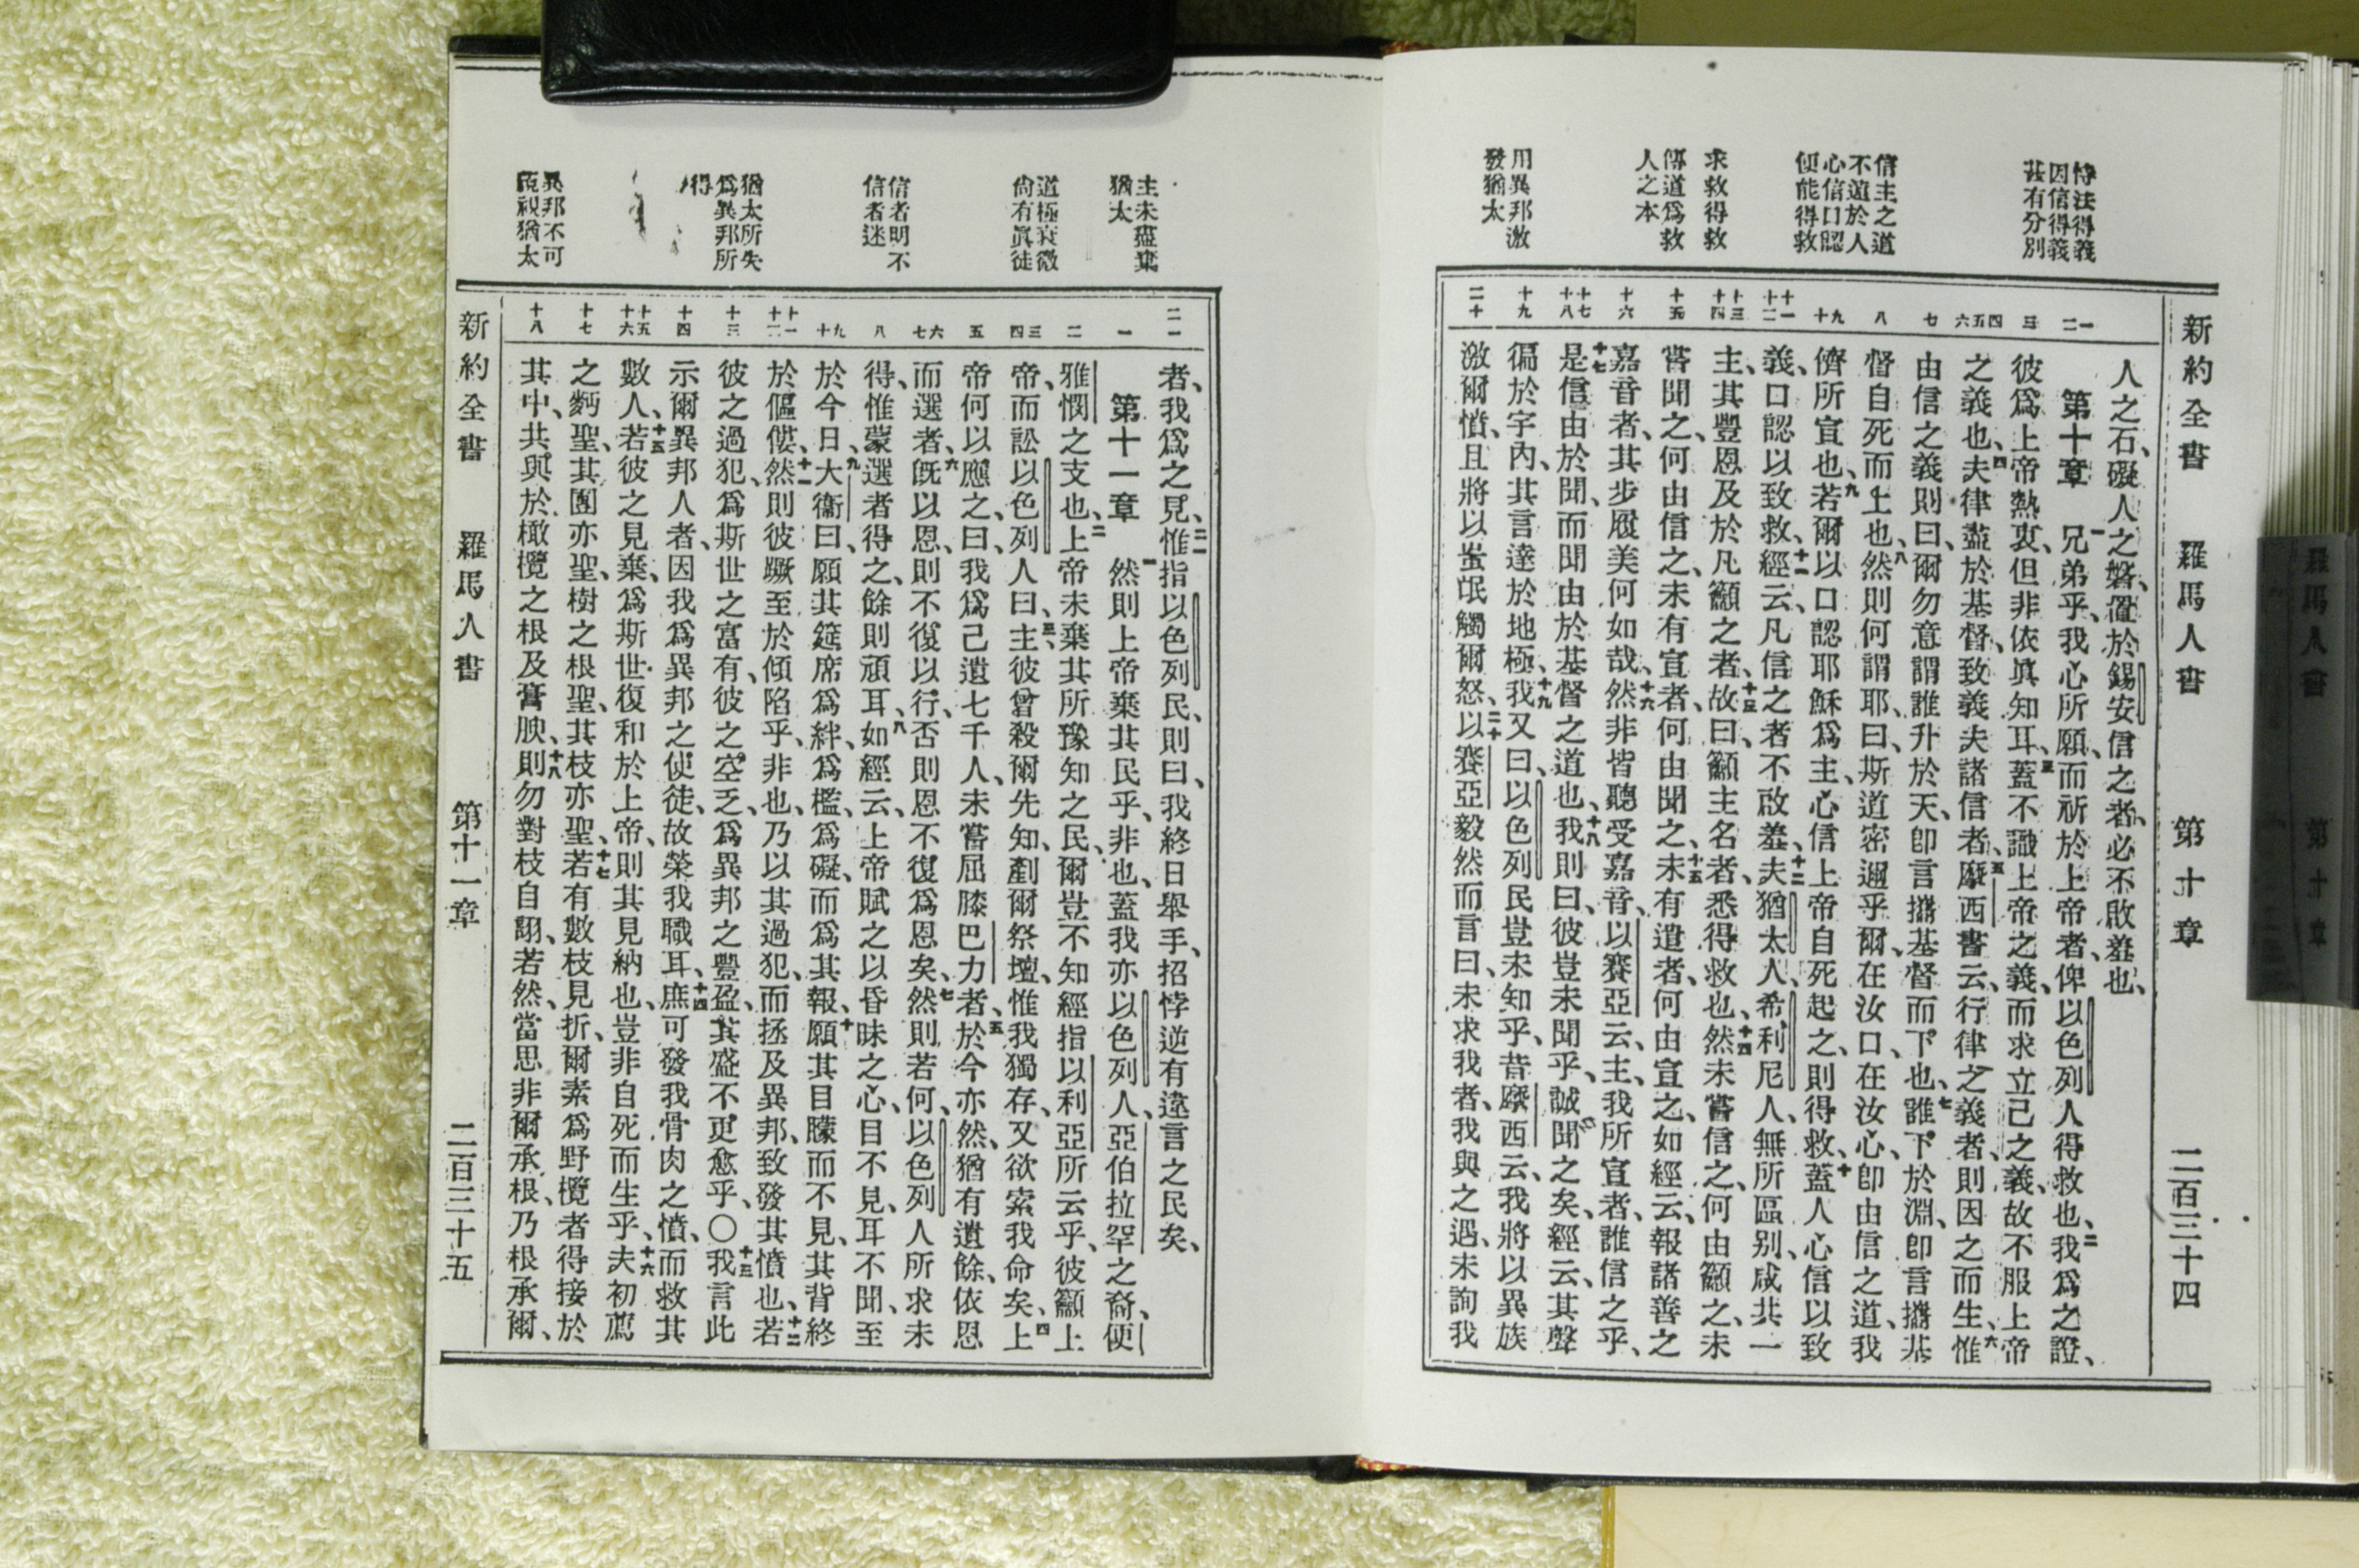 新約全書 羅馬人書 第十章 二百三十四
恃法得義
因信得義
甚有分別
信主之道
不遠於人
心信口認
便能得救
求救得救
傳道爲救
人之本
用異邦激
發猶太
一
二
三
四
五
六
七
八
九
十
十一
十二
十三
十四
十五
十六
十七
十八
十九
二十
人之石、礙人之磐、置於錫安、信之者、必不啟羞也、
第十章 一兄弟乎、我心所願、而祈於上帝者、俾以色列人得救也、二我爲之證、
彼爲上帝熱衷、但非依眞知耳、三蓋不識上帝之義、而求立己之義、故不服上帝
之義也、四夫律蓋於基督、致義夫諸信者、五摩西書云、行律之義者、則因之而生、六惟
由信之義則曰、爾勿意謂誰升於天、卽言攜基督而下也、七誰下於淵、卽言攜基
督自死而上也、八然則何謂耶、曰、斯道密邇乎爾、在汝口、在汝心、卽由信之道、我
儕所宣也、九若爾以口認耶穌爲主、心信上帝自死起之、則得救、十蓋人心信以致
義、口認以致救、十一經云、凡信之者不啟羞、十二夫猶太人、希利尼人、無所區别、咸共一
主、其豐恩及於凡籲之者、十三故曰、籲主名者、悉得救也、十四然未嘗信之、何由籲之、未
嘗聞之、何由信之、未有宣者、何由聞之、十五未有遣者、何由宣之、如經云、報諸善之
嘉音者、其步履美何如哉、十六然非皆聽受嘉音、以賽亞云、主、我所宣者、誰信之乎、
十七是信由於聞、而聞由於基督之道也、十八我則曰、彼豈未聞乎、誠聞之矣、經云、其聲
徧於宇內、其言達於地極、十九我又曰、以色列民豈未知乎、昔摩西云、我將以異族
激爾憤、且將以蚩氓觸爾怒、二十以賽亞毅然而言曰、未求我者、我與之遇、未詢我
主未盡棄
猶太
道極衰微
尙有眞徒
信者明不
信者迷
猶太所失
爲異邦所
得
異邦不可
藐視猶太
二一
一
二
三
四
五
六
七
八
九
十
十一
十二
十三
十四
十五
十六
十七
十八
者、我爲之見、二一惟指以色列民、則曰、我終日舉手、招悖逆有違言之民矣、
第十一章 一然則上帝棄其民乎、非也、蓋我亦以色列人、亞伯拉罕之裔、便
雅憫之支也、二上帝未棄其所豫知之民、爾豈不知經指以利亞所云乎、彼籲上
帝、而訟以色列人曰、三主、彼曾殺爾先知、剷爾祭壇、惟我獨存、又欲索我命矣、四上
帝何以應之、曰、我爲己遺七千人、未嘗屈膝巴力者、五於今亦然、猶有遺餘、依恩
而選者、六旣以恩、則不復以行、否則恩不復爲恩矣、七然則若何、以色列人所求未
得、惟蒙選者得之、餘則頑耳、八如經云、上帝賦之以昏昧之心、目不見、耳不聞、至
於今日、九大衞曰、願其筵席爲絆、爲檻、爲礙、而爲其報、十願其目朦而不見、其背終
於傴僂、十一然則彼蹶至於傾陷乎、非也、乃以其過犯、而拯及異邦、致發其憤也、十二若
彼之過犯、爲斯世之富有、彼之空乏、爲異邦之豐盈、其盛不更愈乎、〇十三我言此
示爾異邦人者、因我爲異邦之使徒、故榮我職耳、十四庶可發我骨肉之憤、而救其
數人、十五若彼之見棄、爲斯世復和於上帝、則其見納也、豈非自死而生乎、十六夫初薦
之麪聖、其團亦聖、樹之根聖、其枝亦聖、十七若有數枝見折、爾素爲野欖者得接於
其中、共與於橄欖之根及膏腴、十八則勿對枝自詡、若然、當思非爾承根、乃根承爾、
新約全書 羅馬人書 第十一章 二百三十五
羅馬人書 第十章